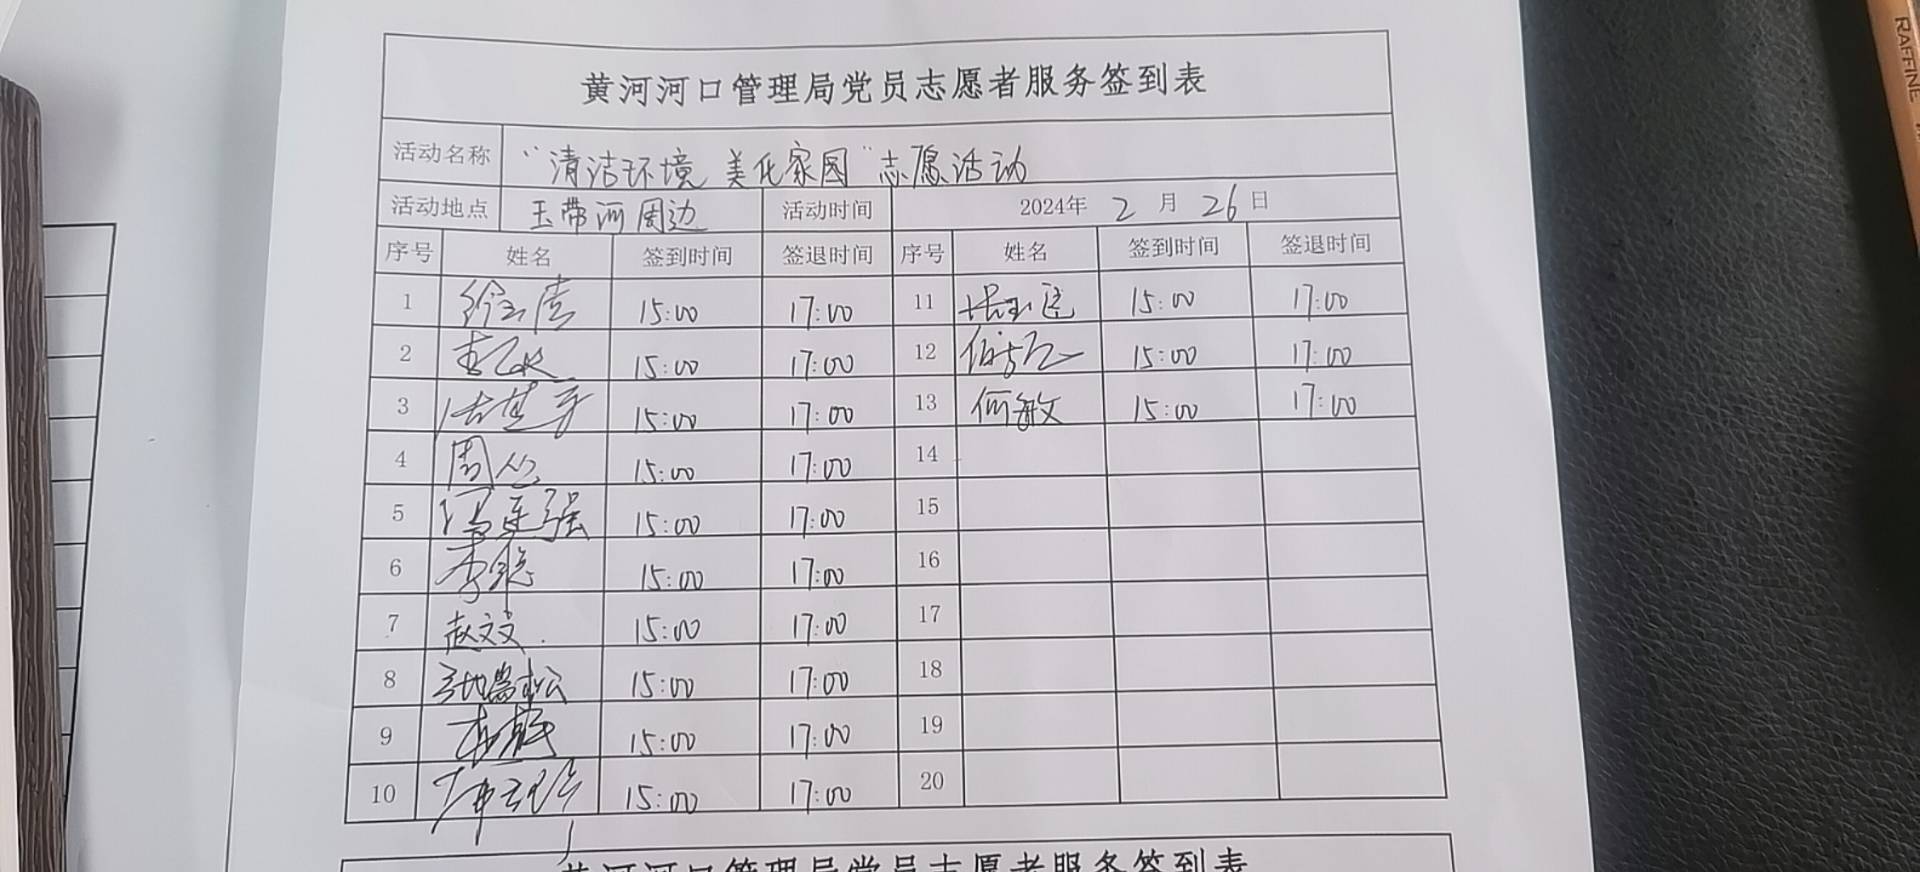 黄河河口管理局党员志愿者服务签到表
活动名称 “清洁环境 美化家园”志愿活动
活动地点 玉带河周边 活动时间 2024年 2 月 26 日
序号 姓名 签到时间 签退时间 序号 姓名 签到时间 签退时间
1 15:00 17:00 11 15:00 17:00
2 15:00 17:00 12 15:00 17:00
3 15:00 17:00 13 何敏 15:00 17:00
4 周 15:00 17:00 14
5 冯建强 15:00 17:00 15
6 李聪 15:00 17:00 16
7 赵文文 15:00 17:00 17
8 15:00 17:00 18
9 15:00 17:00 19
10 15:00 17:00 20
黄河河口管理局党员志愿者服务签到表
RAFFINE